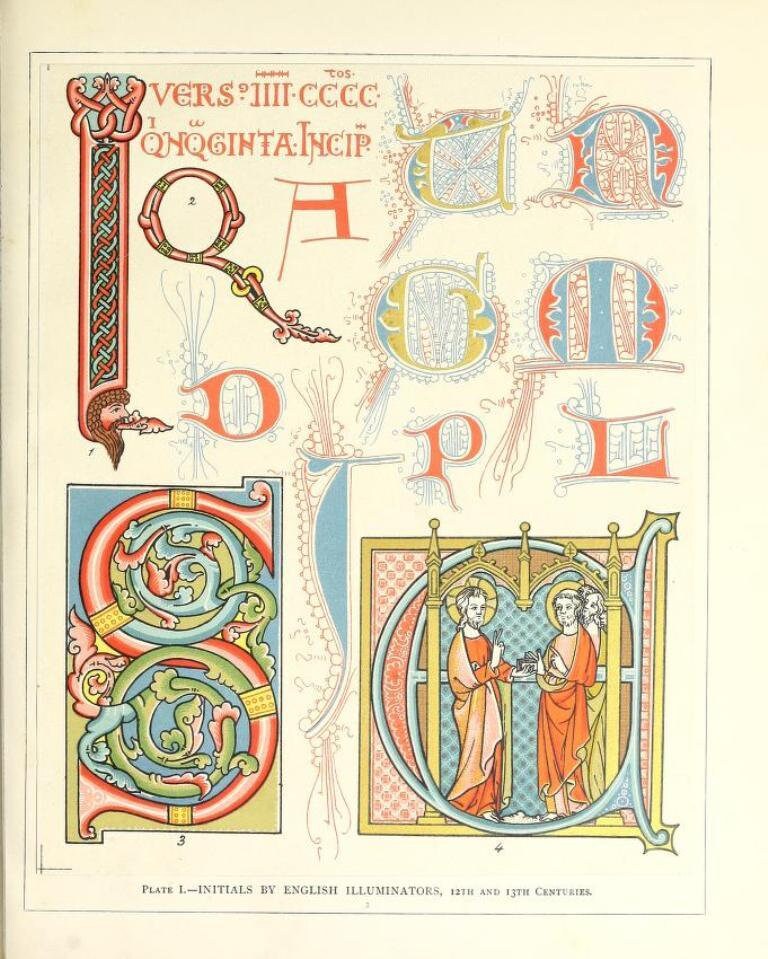 VERS⁹ IIII·CCCC·
TOS·
QNQGINTA·INCIP
2
A
D
P
L
1
3
4
PLATE I.—INITIALS BY ENGLISH ILLUMINATORS, 12TH AND 13TH CENTURIES.